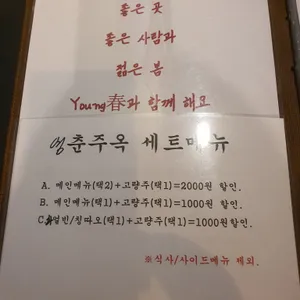 좋은 곳
좋은 사람과
젊은 봄
Young春과 함께 해요
영춘주옥 세트메뉴
A. 메인메뉴(택2)+고량주(택1)=2000원 할인.
B. 메인메뉴(택1)+고량주(택1)=1000원 할인.
C. 얼빈/칭따오(택1)+고량주(택1)=1000원할인.
※식사/사이드메뉴 제외.